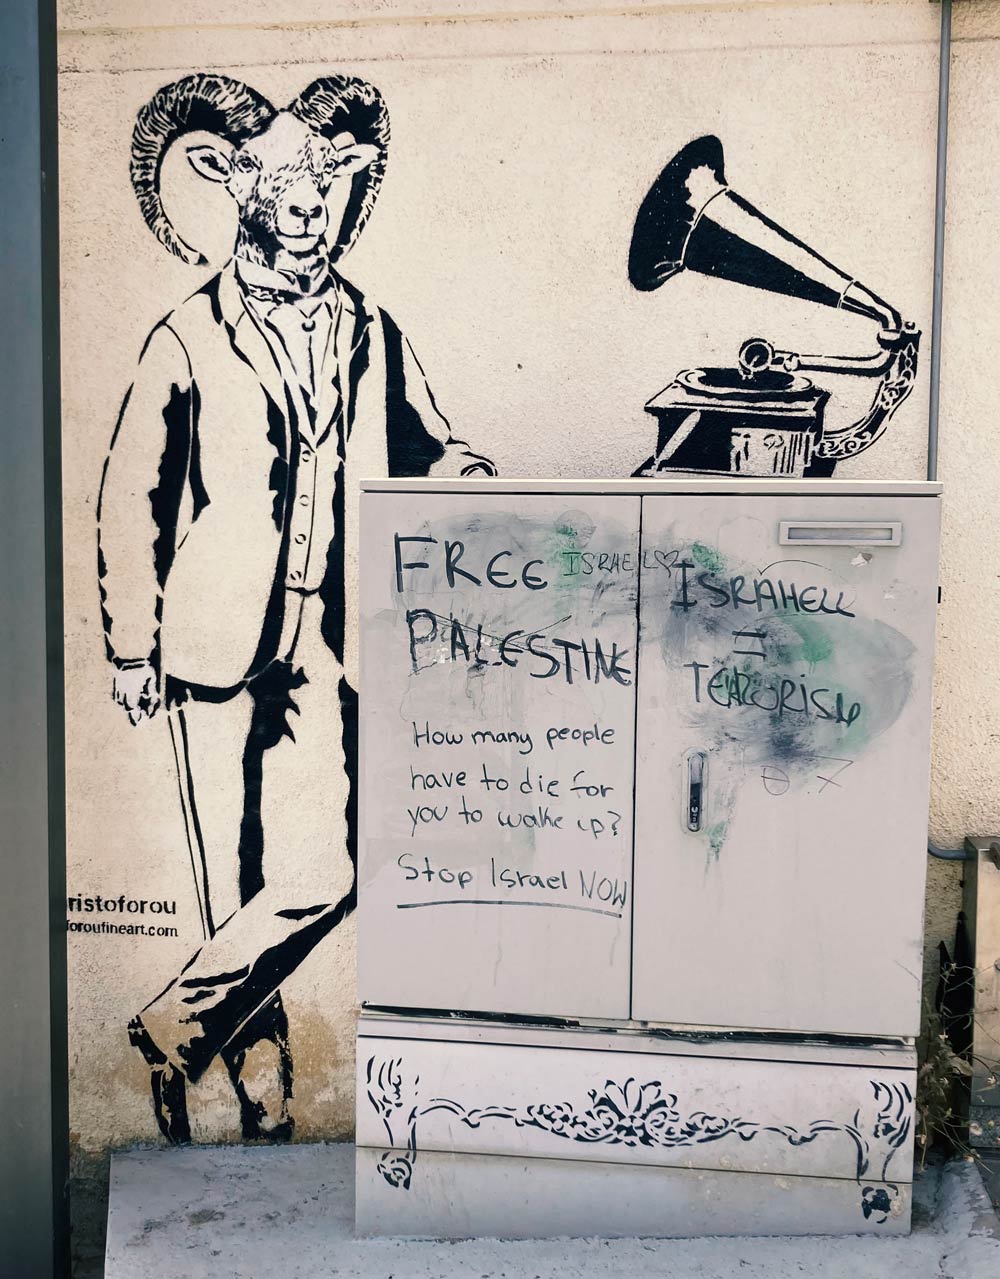 FREE
ISRAEL♡
PALESTINE
How many people
have to die for
you to wake up?
Stop Israel NOW
ISRAHELL
=
TERRORISM
ristoforou
foroufineart.com